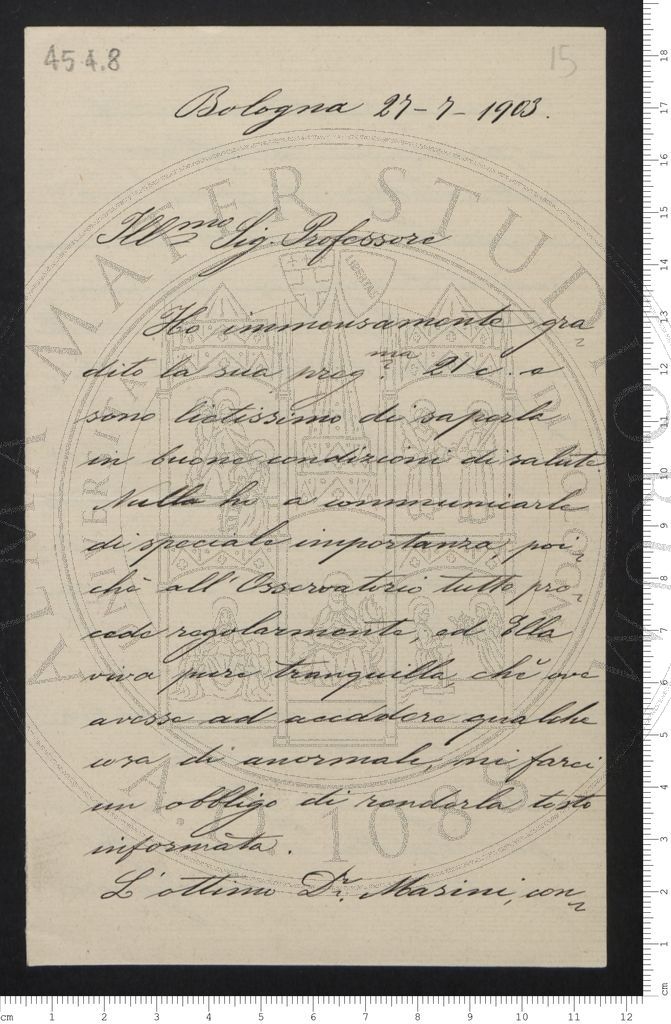 45 4.8
15
Bologna 27-7-1903.
Ill.mo Sig. Professore
Ho immensamente gra
dito la sua preg.ma 21 c. e
sono lietissimo di saperla
in buone condizioni di salute.
Nulla ho a communicarle
di speciale importanza, poi
chè all'Osservatorio tutto pro
cede regolarmente, ed Ella
viva pure tranquilla, chè ove
avesse ad accaddere qualche
cosa di anormale, mi farei
un obbligo di renderla tosto
informata.
L'ottimo Dr. Masini, con
ALMA MATER STUDIORUM
A.D. 1088
LIBERTAS